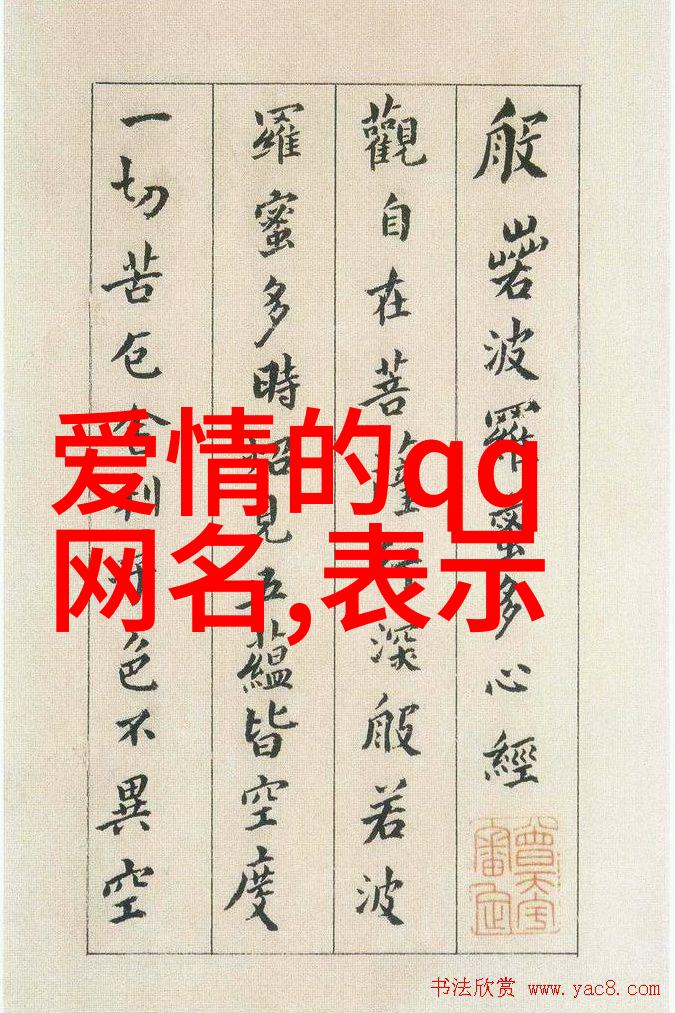 般若波羅蜜多心經
觀自在菩薩行深般若波
羅蜜多時照見五蘊皆空度
一切苦厄舍利色不異空
爱情的qq
网名,表示
书法欣赏 www.yac8.com